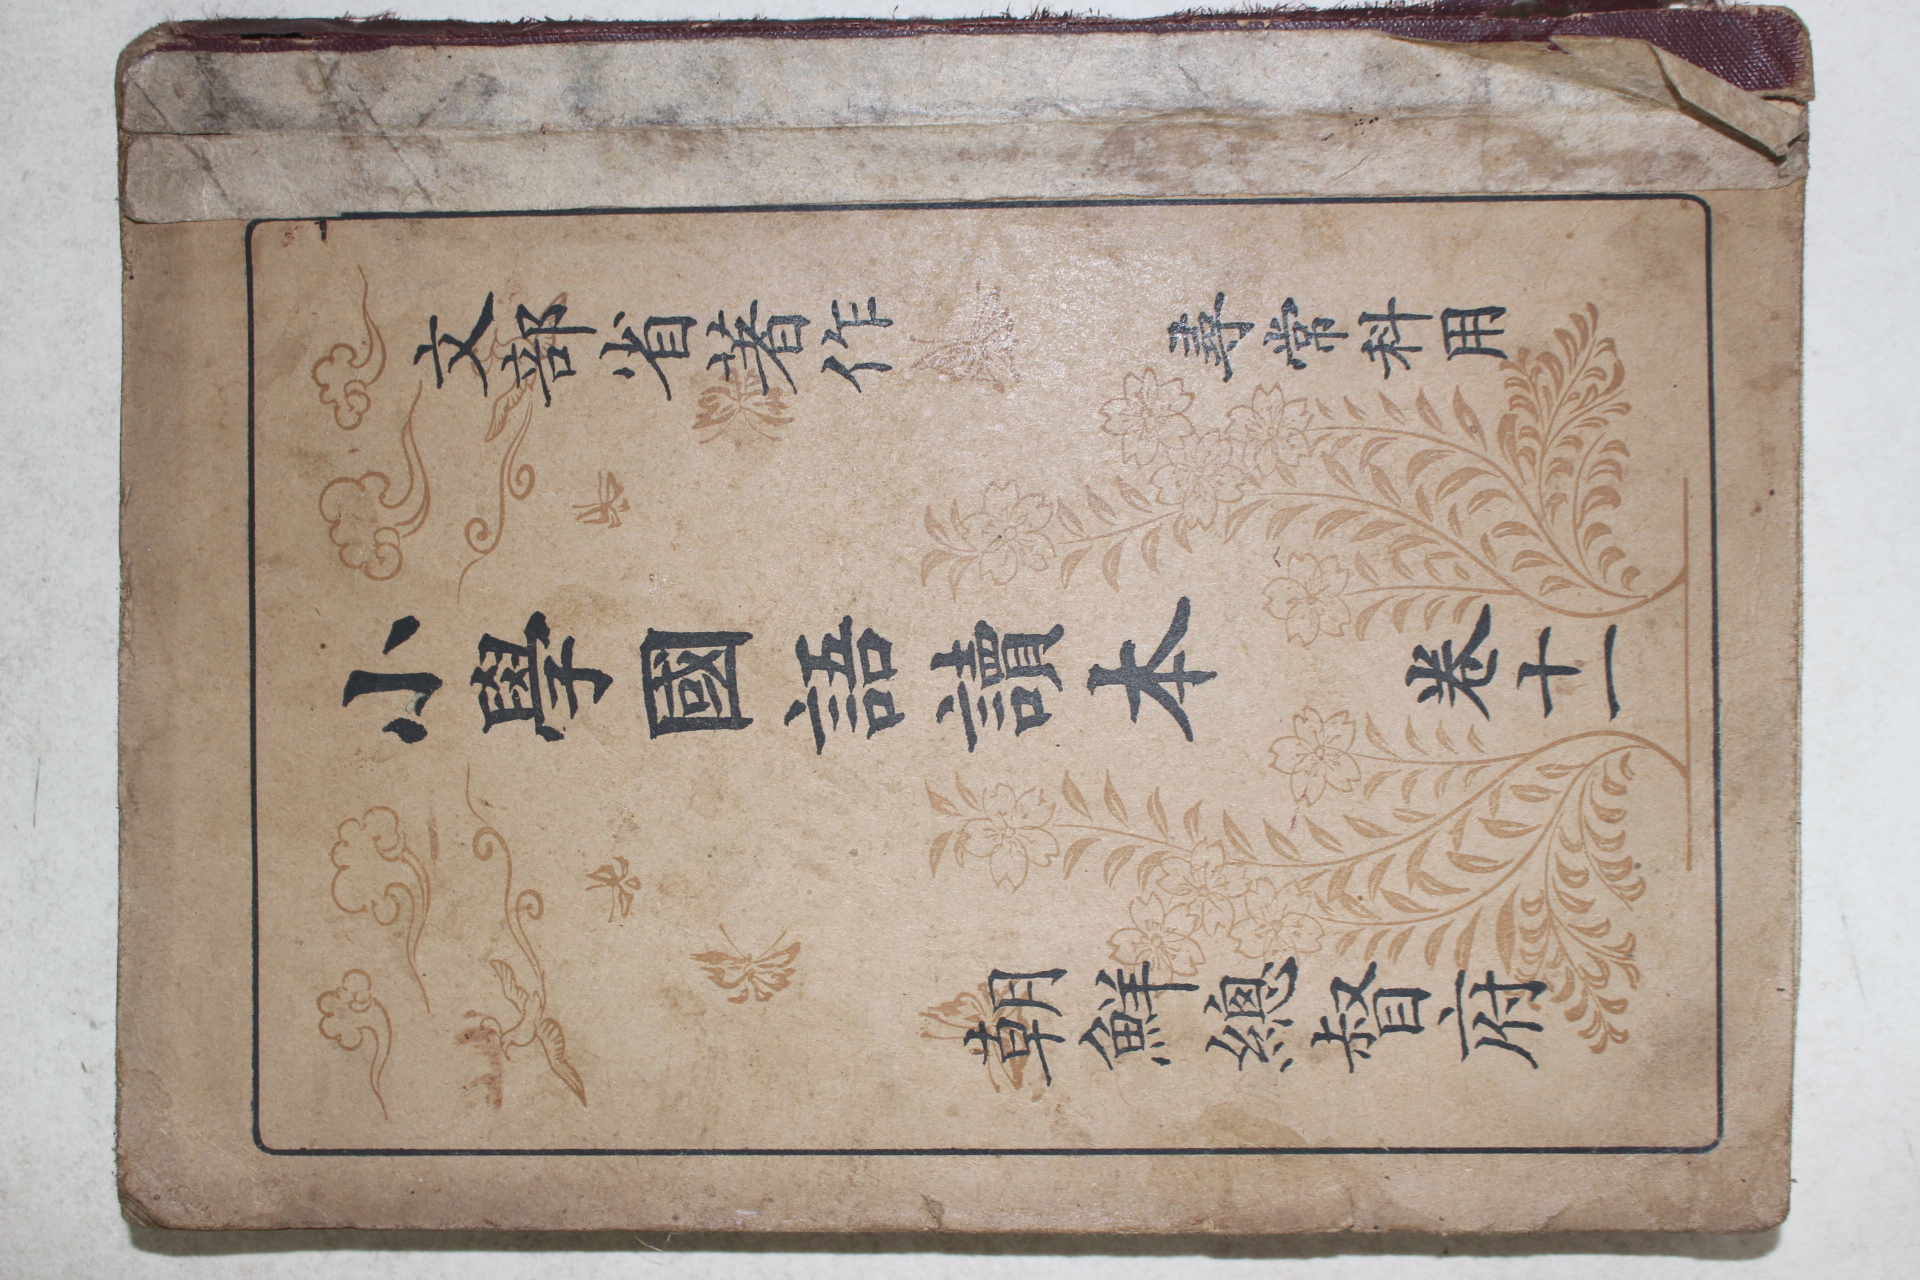 文部省著作
尋常科用
小學國語讀本 卷十一
朝鮮總督府